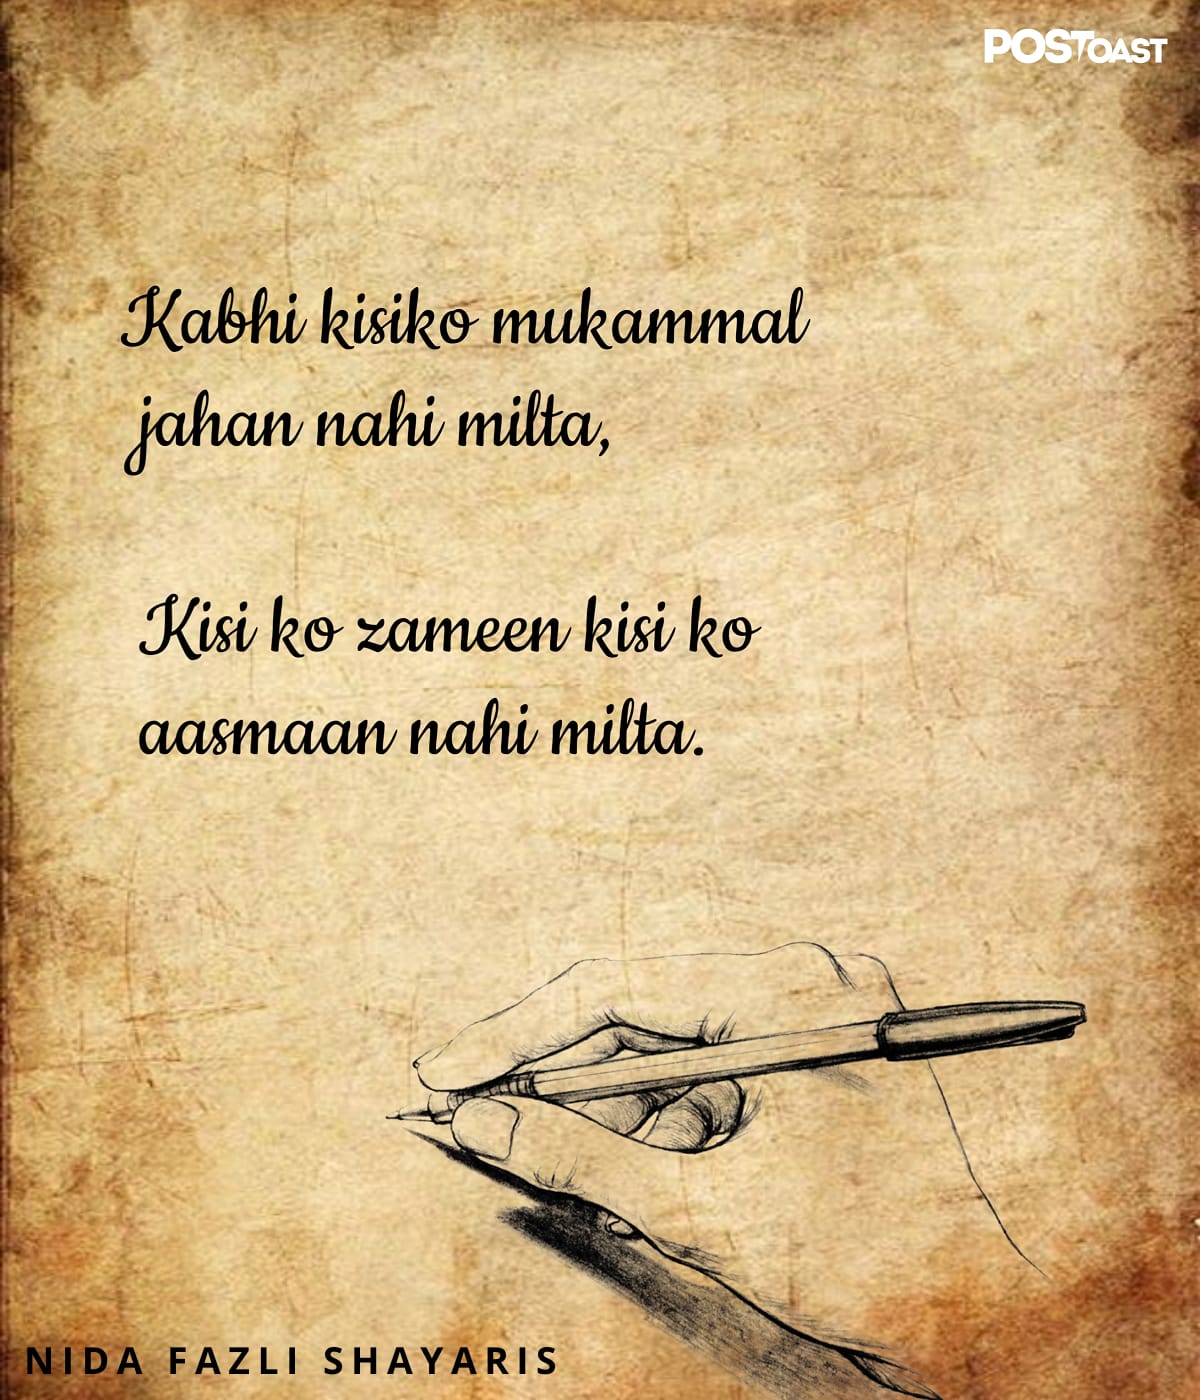 POSTOAST
Kabhi kisiko mukammal
jahan nahi milta,
Kisi ko zameen kisi ko
aasmaan nahi milta.
NIDA FAZLI SHAYARIS